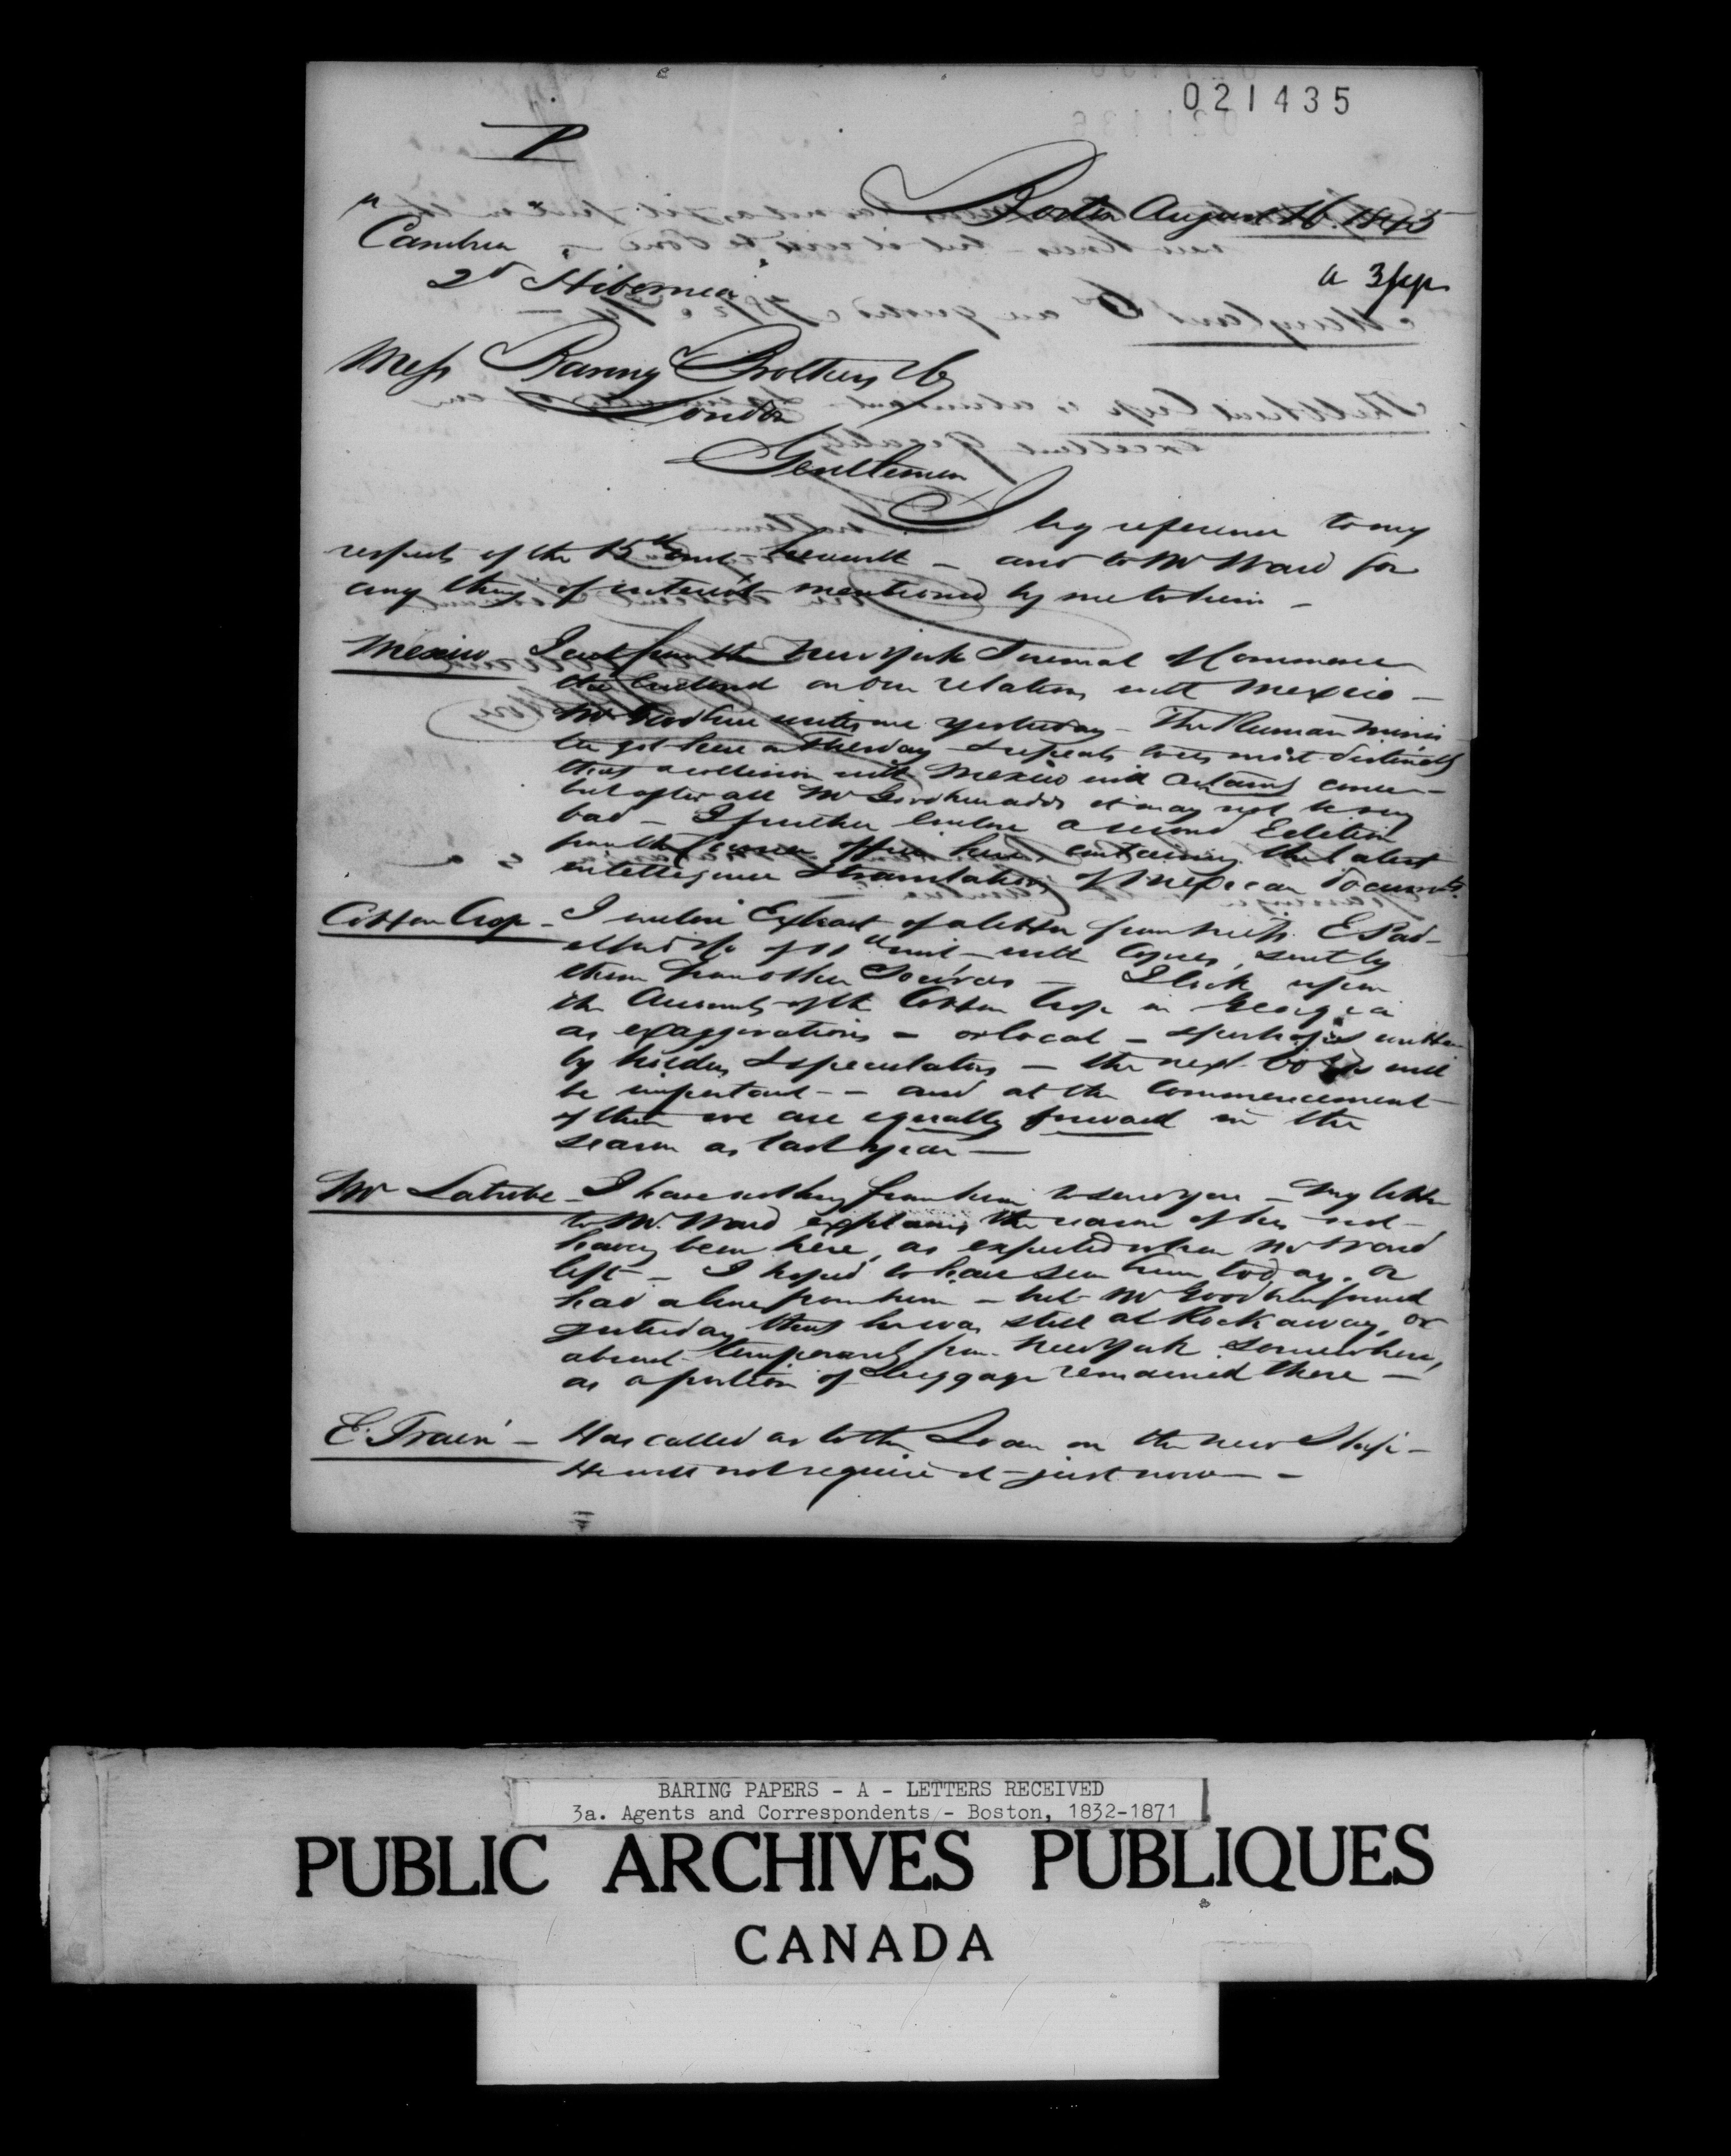 021435
P
Boston August 16. 1845
Cambria
2d Hibernia
a 3 Sep
Mess Baring Brothers & Co
London
Gentlemen
I beg reference to my
respects of the 15th inst herewith — and to Mr Ward for
any thing of interest mentioned by me to him —
Mexico I cut from the New York Journal of Commerce
the enclosed on our relations with Mexico —
Mr Goodhue writes me yesterday — The Russian Minis
ter got here on Thursday & repeats most distinctly
that a collision with Mexico will certainly come —
but after all Mr Goodhue adds it may not be very
bad — I further enclose a second Edition
from the Courier office here, containing the latest
intelligence & translations of Mexican Documents.
Cotton Crop — I enclose Extract of a letter from Messs. E Pad-
elford & Co of 11th inst — with Copies, sent by
them from other Sources — I look upon
the Accounts of the Cotton Crop in Georgia
as exaggerations — or local — & perhaps written
by holders & speculators — the next 60 ds will
be important — and at the Commencement
of them we are equally forward in the
season as last year —
Mr Latrobe — I have nothing from him to send you — My letter
to Mr. Ward explains the reason of his not
having been here, as expected when Mr Ward
left — I hoped to have seen him today, or
had a line from him — but Mr Goodhue found
yesterday that he was still at Rockaway, or
absent temporarily from New York somewhere,
as a portion of Luggage remained there —
E. Train — Has called as to the Loan on the new Ship —
He will not require it just now —
BARING PAPERS - A - LETTERS RECEIVED
3a. Agents and Correspondents - Boston, 1832-1871
PUBLIC ARCHIVES PUBLIQUES
CANADA